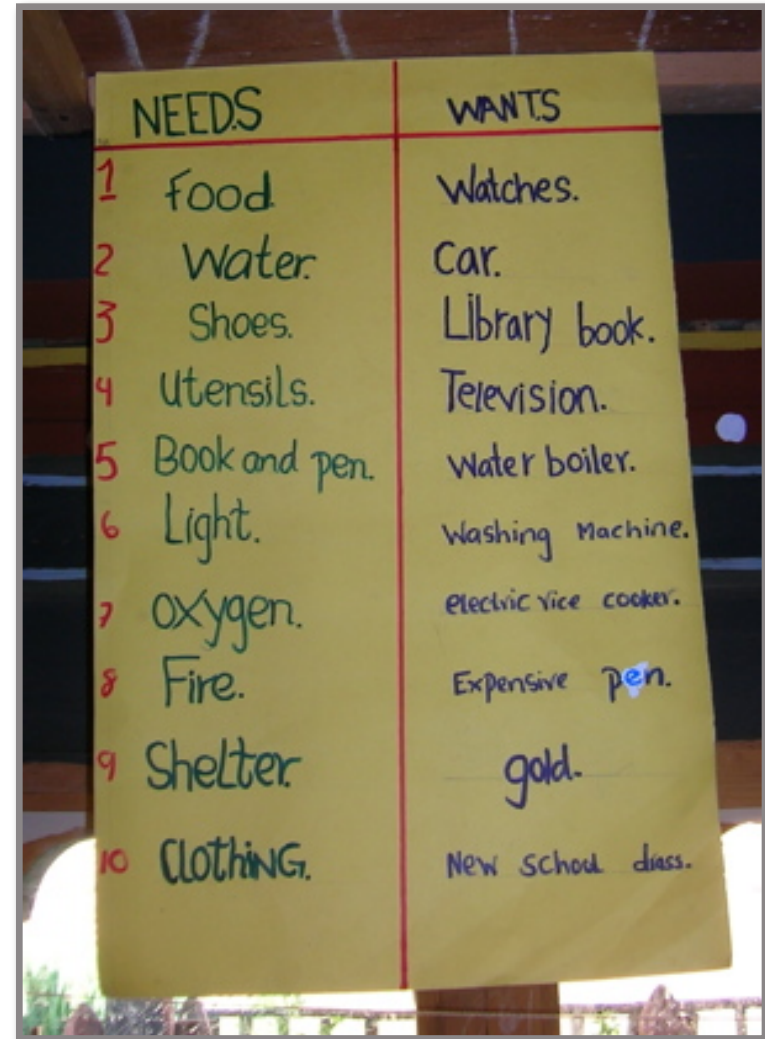 NEEDS WANTS
1 food. Watches.
2 Water. Car.
3 Shoes. Library book.
4 Utensils. Television.
5 Book and pen. Water boiler.
6 Light. Washing Machine.
7 oxygen. electric rice cooker.
8 Fire. Expensive pen.
9 Shelter. gold.
10 ClothiNG. New school